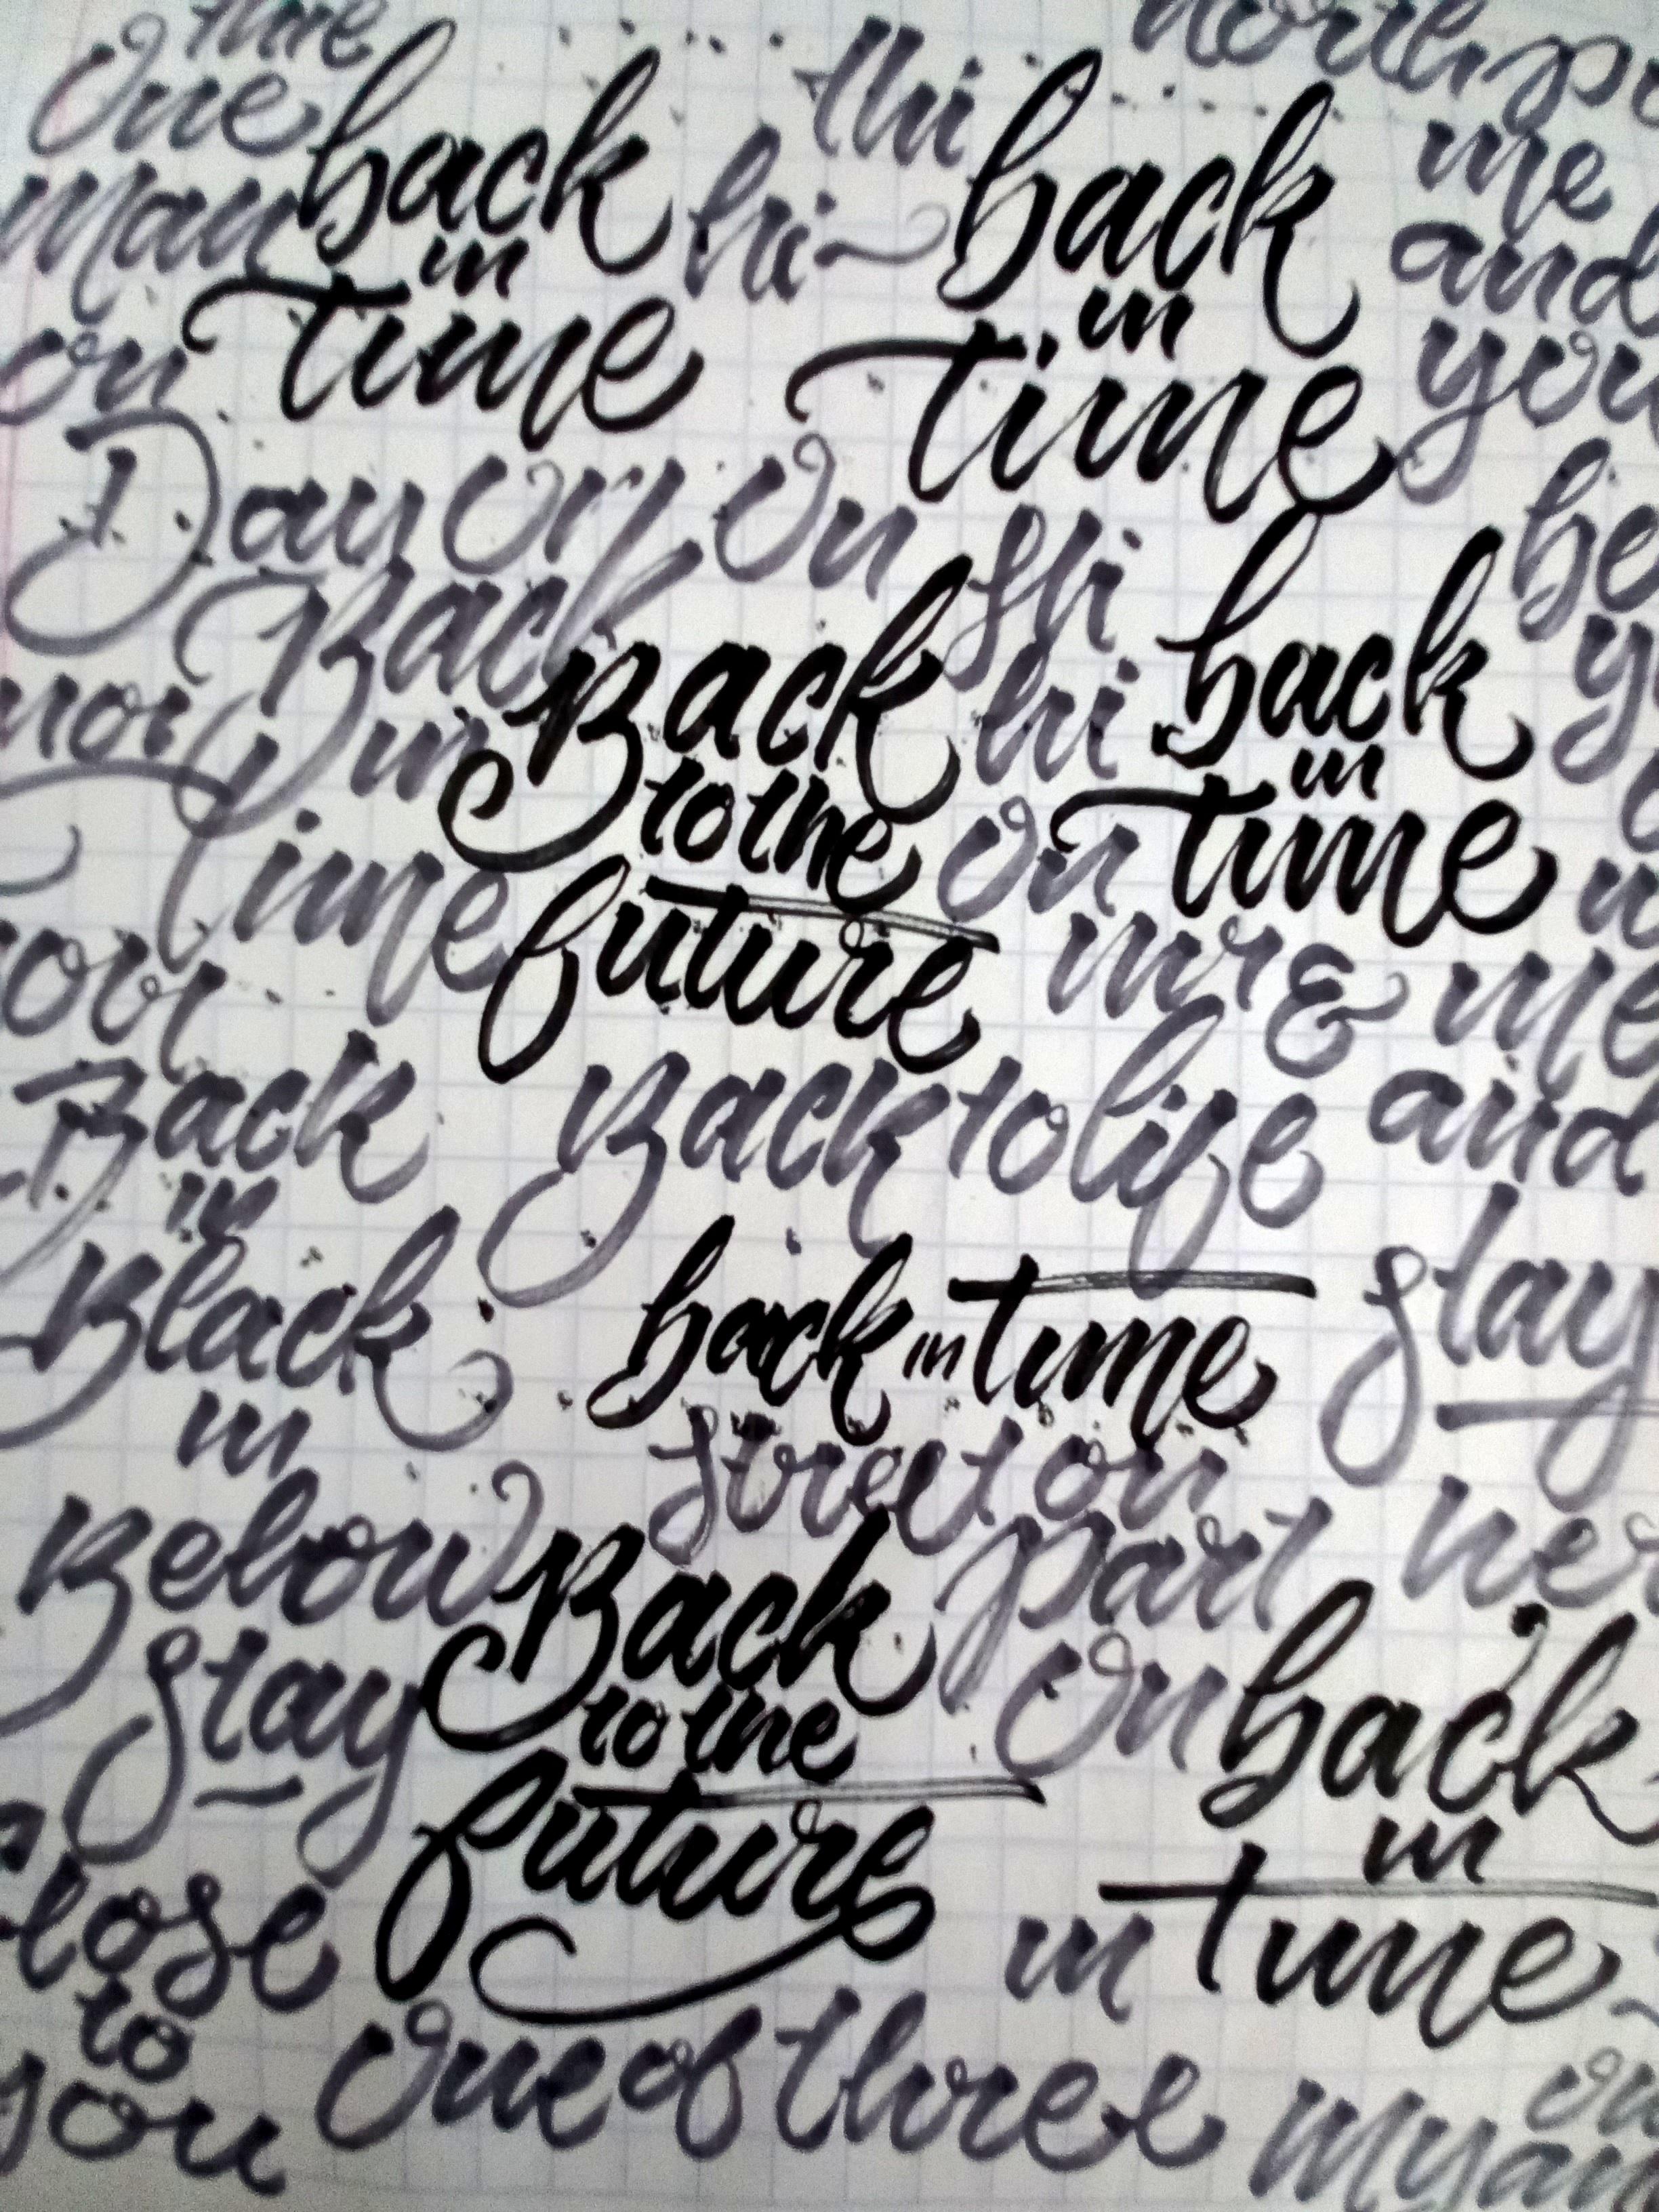 One
man
on
back
in
time
thi
hi
back
in
time
north
me
and
you
Day off
On
Back
in
Time
Back
to the
future
hi
on
back
in
time
mr & me
and
stay
Back
in
Black
in
Below
stay
Back to life
back in time
street on
part
On
Back
to the
future
back
in
time
in
lose
to
you
One of three